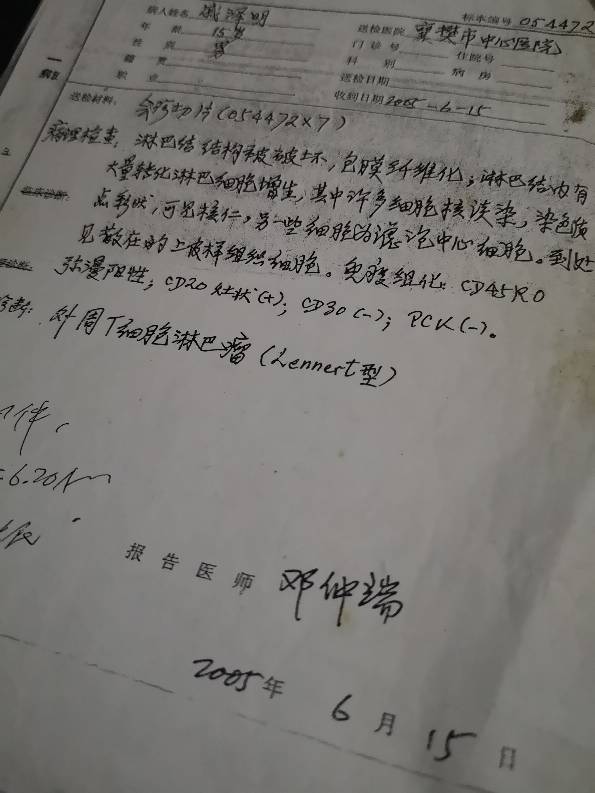 标本编号 054472
病人姓名 臧泽明 送检医院 襄樊市中心医院
年龄 15岁 门诊号 住院号
性别 男 科别 病房
籍贯 送检日期
职业 收到日期 2005-6-15
送检材料: 会诊切片(054472×7)
病理检查: 淋巴结结构被破坏,包膜纤维化;淋巴结内有
大量转化淋巴细胞增生,其中许多细胞核淡染,染色质
临床诊断: 点彩状,可见核仁,另一些细胞为滤泡中心细胞。到处
见散在的上皮样组织细胞。免疫组化: CD45RO
弥漫阳性; CD20灶状(+); CD30(-); PCK(-)。
诊断: 外周T细胞淋巴瘤(Lennert型)
件,
6.20
报告医师 邓仲端
2005年 6月 15日